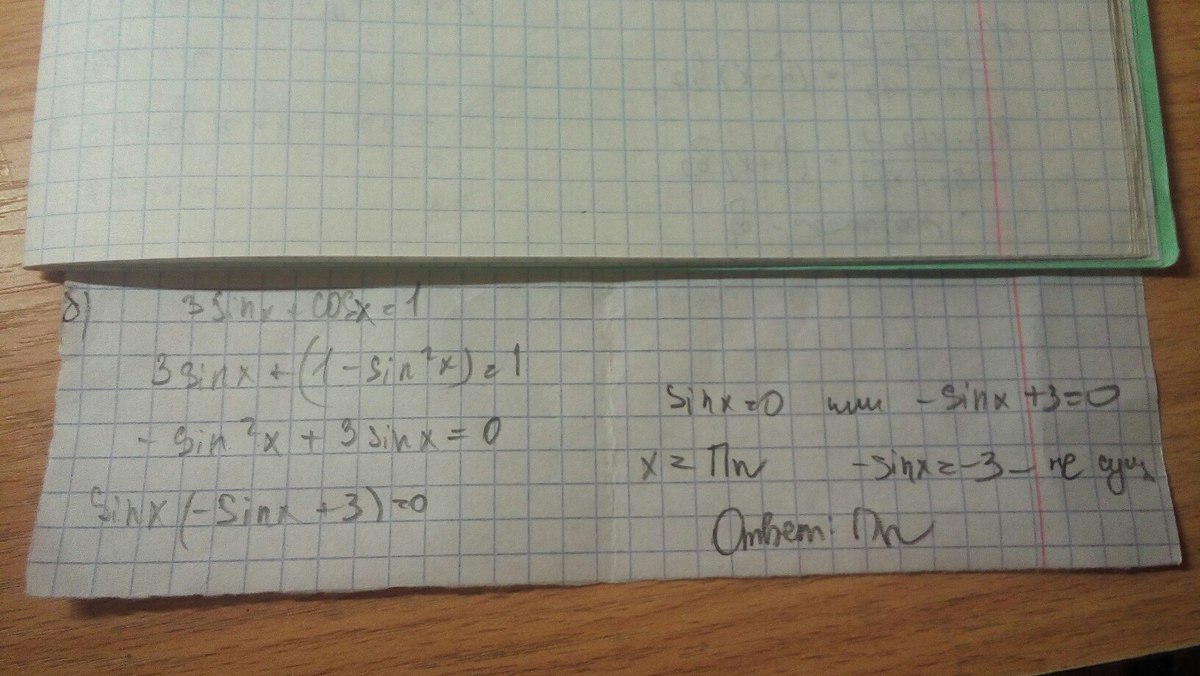 б) 3 sinx + cosx = 1
3 sinx + (1 - sin²x) = 1
- sin²x + 3 sinx = 0
sinx (-sinx + 3) = 0
sinx = 0 или - sinx + 3 = 0
x = Πn - sinx = -3 - не сущ
Ответ: Πn